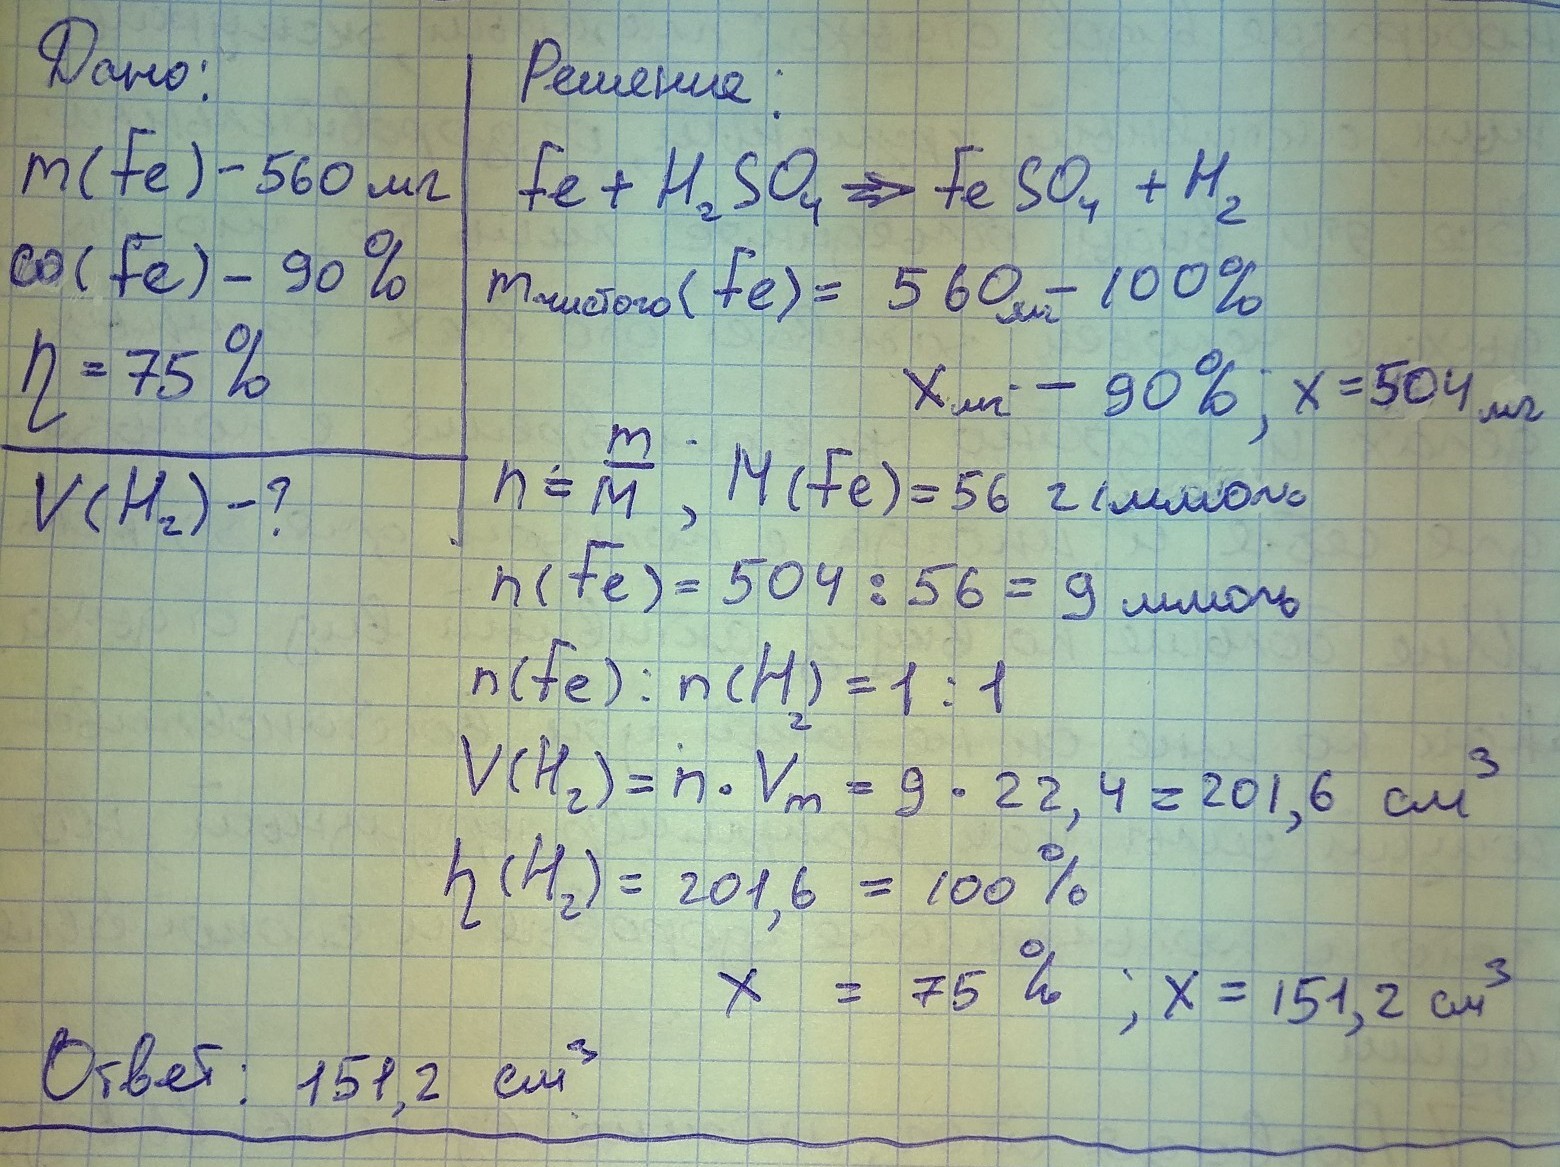 Дано:
m(Fe) - 560 мг
ω(Fe) - 90 %
η = 75 %
V(H₂) - ?
Решение:
Fe + H₂SO₄ ⇒ FeSO₄ + H₂
m чистого (Fe) = 560 мг - 100 %
X мг - 90 % ; x = 504 мг
n = m/M ; M(Fe) = 56 г/ммоль
n(Fe) = 504 : 56 = 9 ммоль
n(Fe) : n(H₂) = 1 : 1
V(H₂) = n · Vm = 9 · 22,4 = 201,6 см³
η(H₂) = 201,6 = 100 %
X = 75 % ; X = 151,2 см³
Ответ: 151,2 см³